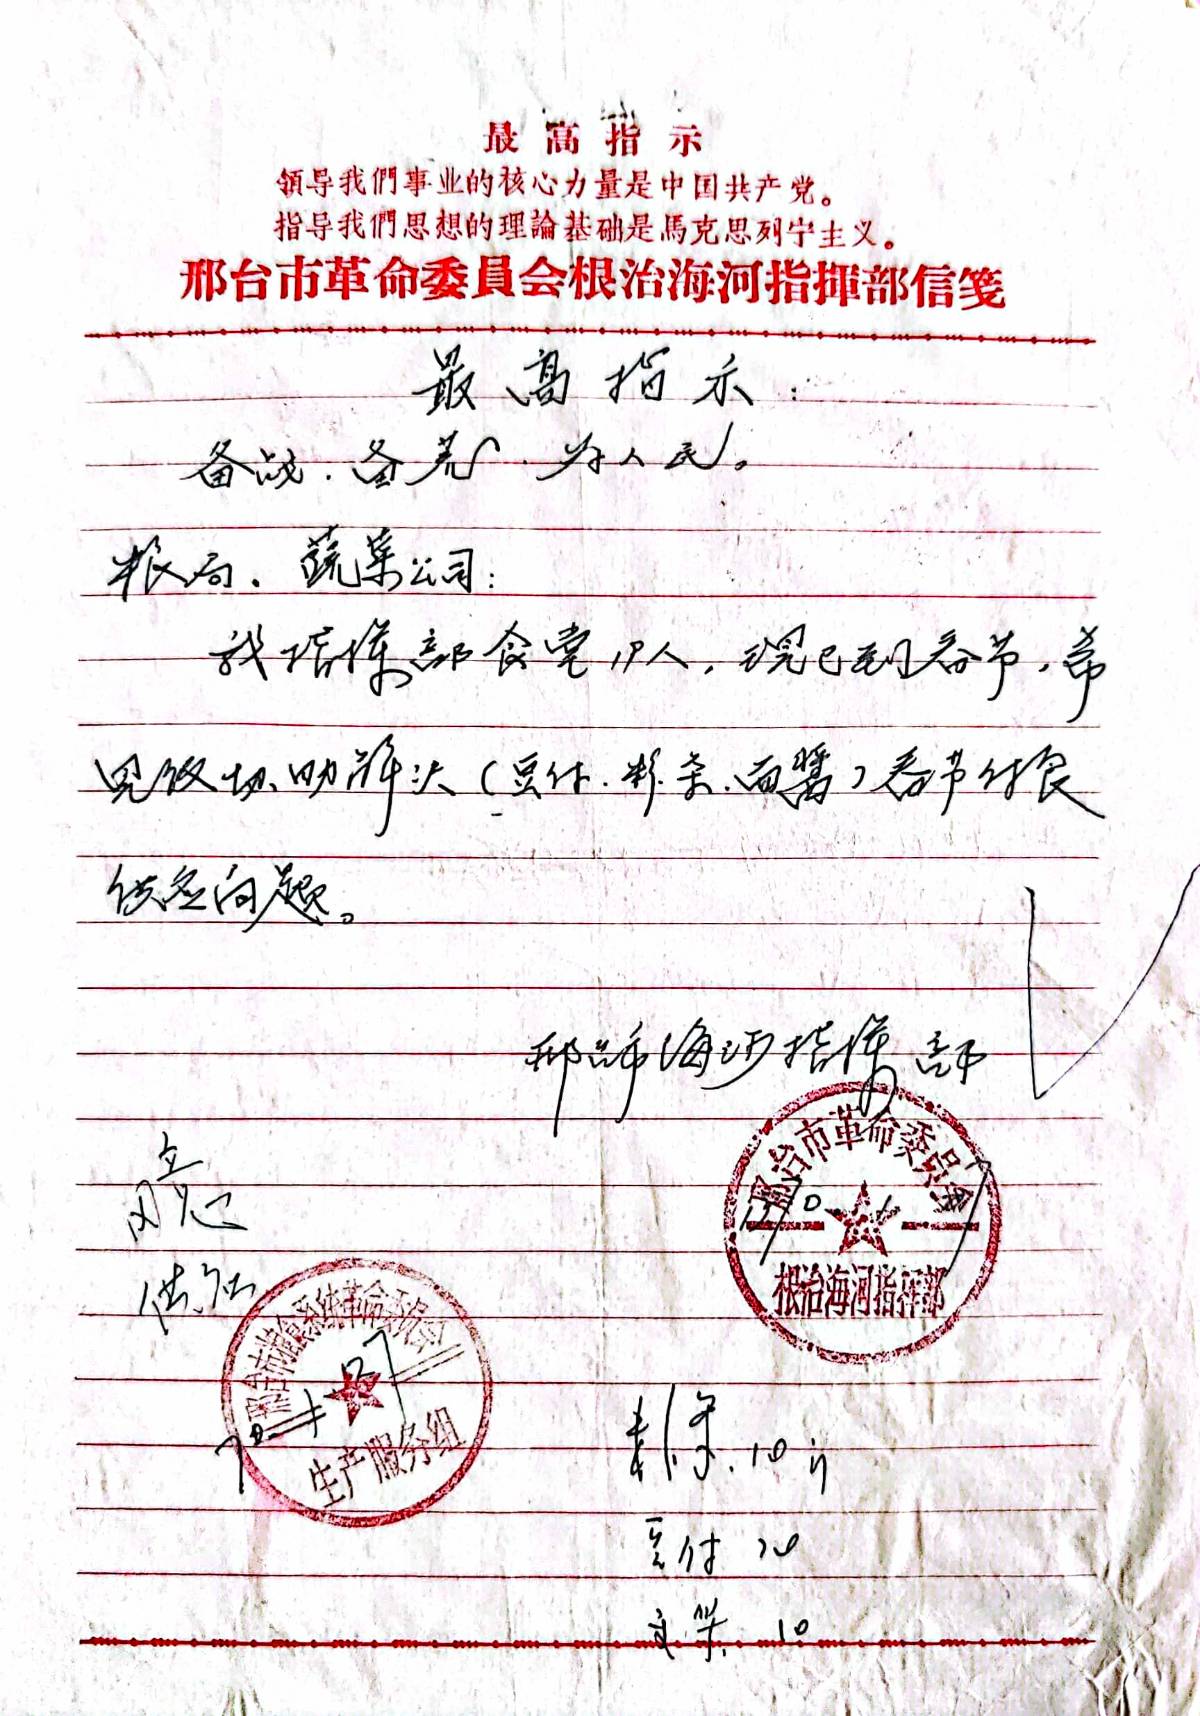 最高指示
領导我們事业的核心力量是中国共产党。
指导我們思想的理論基础是馬克思列宁主义。
邢台市革命委員会根治海河指揮部信箋
最高指示：
备战．备荒．为人民。
粮局．蔬菜公司：
我指揮部食堂19人，现已到春节，希
见後协助解决（豆付．粉条．面醬）春节付食
供应问题。
邢台市海河指揮部
邢台市革命委员会
70
根治海河指揮部
同意
供应
邢台市粮食系统革命委员会
70 1 27
生产服务组
粉条．10斤
豆付 20
10